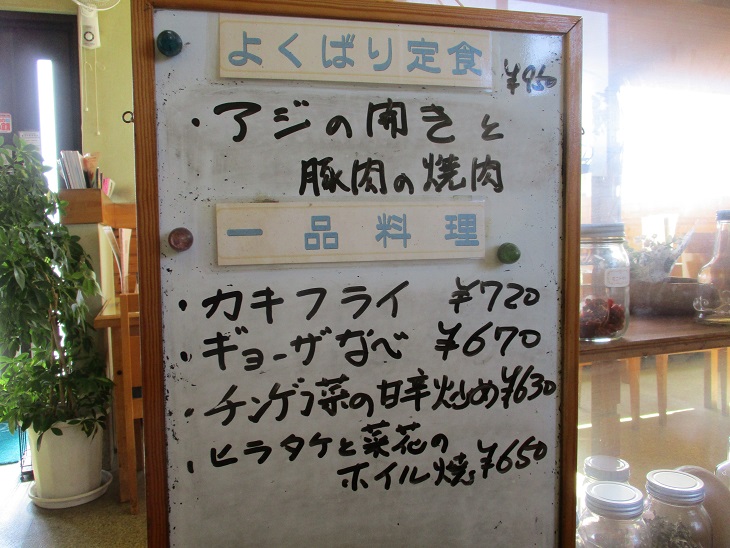 よくばり定食
¥950
・アジの開きと
豚肉の焼肉
一品料理
・カキフライ ¥720
・ギョーザなべ ¥670
・チンゲン菜の甘辛炒め ¥630
・ヒラタケと菜花の
ホイル焼 ¥650